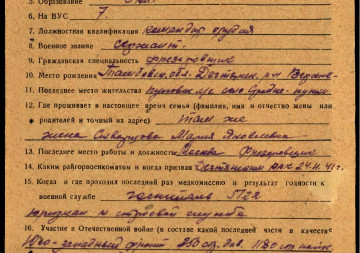 5. Образование
6. На ВУС 7.
7. Должностная квалификация командир орудия
8. Военное звание сержант.
9. Гражданская специальность фрезеровщик
10. Место рождения Тамбовск. обл.
11. Последнее место жительства
12. Где проживает в настоящее время семья (фамилия, имя и отчество жены или
родителей и точный их адрес) Там же
жена Мария Яковлевна
13. Последнее место работы и должность Москва Фрезеровщик
14. Каким райгорвоенкоматом и когда призван РВК 24.11.41г.
15. Когда и где проходил последний раз медкомиссию и результат годности к
военной службе госпиталь 5122
к строевой службе
16. Участие в Отечественной войне (в составе какой последней части в качестве
Юго-западный фронт 253 стр. див. 1180 стр.